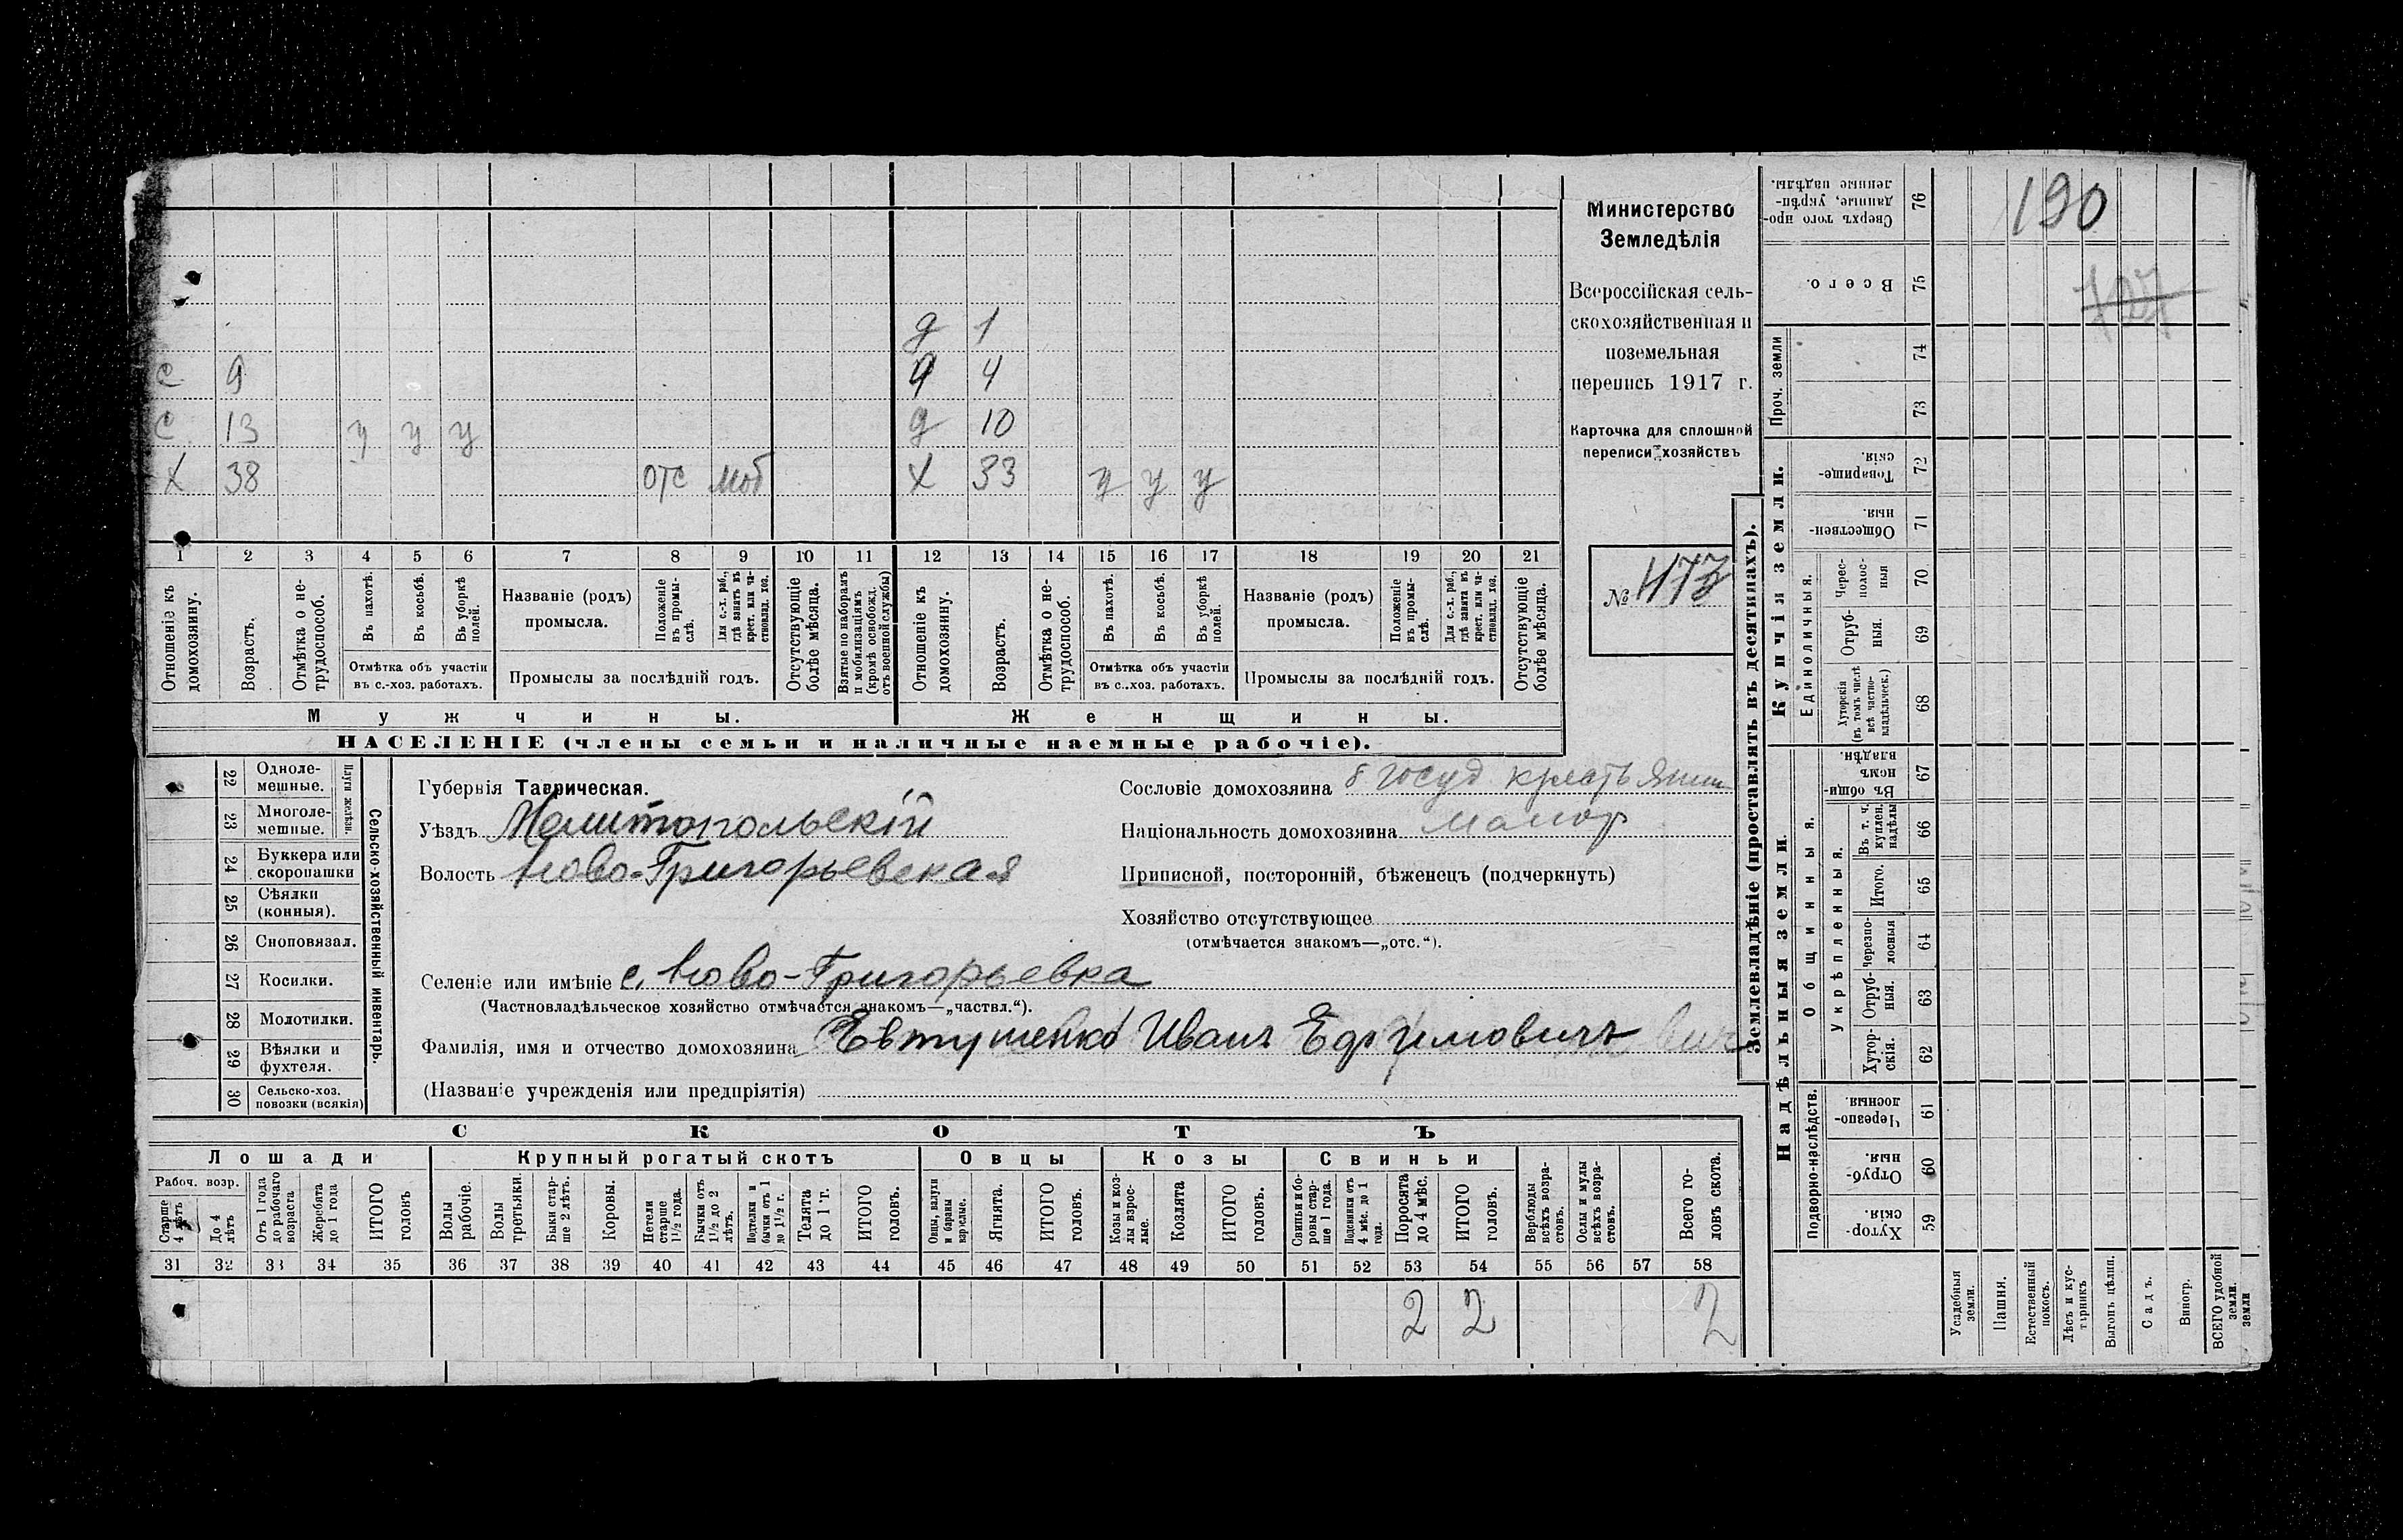 д 1
с 9 ч 4
с 13 у у у д 10
х 38 отс моб х 33 у у у
1 2 3 4 5 6 7 8 9 10 11 12 13 14 15 16 17 18 19 20 21
Отношеніе къ домохозяину.
Возрастъ.
Отмѣтка о не-
трудоспособ.
Въ пахотѣ.
Въ косьбѣ.
Въ уборкѣ
полей.
Отмѣтка объ участіи
въ с.-хоз. работахъ.
Названіе (родъ)
промысла.
Положеніе
въ промы-
слѣ.
Для с.-х. раб.,
гдѣ занятъ въ
крест. или ча-
стновлад. хоз.
Промыслы за послѣдній годъ.
Отсутствующіе
болѣе мѣсяца.
Взятые по наборамъ
и мобилизаціямъ
(кромѣ освобожд.
отъ военной службы)
Отношеніе къ
домохозяину.
Возрастъ.
Отмѣтка о не-
трудоспособ.
Въ пахотѣ.
Въ косьбѣ.
Въ уборкѣ
полей.
Отмѣтка объ участіи
въ с.-хоз. работахъ.
Названіе (родъ)
промысла.
Положеніе
въ промы-
слѣ.
Для с.-х. раб.,
гдѣ занята въ
крест. или ча-
стновлад. хоз.
Промыслы за послѣдній годъ.
Отсутствующіе
болѣе мѣсяца.
Мужчины. Женщины.
НАСЕЛЕНІЕ (члены семьи и наличные наемные рабочіе).
Министерство
Земледѣлія
Всероссійская сель-
скохозяйственная и
поземельная
перепись 1917 г.
Карточка для сплошной
переписи хозяйствъ
№ 473
22 Одноле-
мешные.
23 Многоле-
мешные.
Плуги желѣзн.
24 Буккера или
скоропашки
25 Сѣялки
(конныя).
26 Сноповязал.
27 Косилки.
28 Молотилки.
29 Вѣялки и
фухтеля.
30 Сельско-хоз.
повозки (всякія)
Сельско-хозяйственный инвентарь.
Губернія Таврическая.
Уѣздъ Мелитопольскій
Волость Ново-Григорьевская
Селеніе или имѣніе с. Ново-Григорьевка
(Частновладѣльческое хозяйство отмѣчается знакомъ—„частвл.“).
Фамилія, имя и отчество домохозяина Евтушенко Иванъ Ефимовичъ
(Названіе учрежденія или предпріятія)
Сословіе домохозяина б госуд крестьянин
Національность домохозяина малор
Приписной, посторонній, бѣженецъ (подчеркнуть)
Хозяйство отсутствующее
(отмѣчается знакомъ—„отс.“).
СКОТЪ
Лошади Крупный рогатый скотъ Овцы Козы Свиньи
Рабоч. возр.
Старше
4 лѣтъ
До 4
лѣтъ
Отъ 1 года
до рабочаго
возраста
Жеребята
до 1 года
ИТОГО
головъ
Волы
рабочіе.
Волы
третьяки.
Быки стар-
ше 2 лѣтъ.
Коровы.
Нетели
старше
1½ года.
Бычки отъ
1½ до 2
лѣтъ.
Подтелки и
бычки отъ 1
до 1½ г.
Телята
до 1 г.
ИТОГО
головъ.
Овцы, валухи
и бараны
взрослые.
Ягнята.
ИТОГО
головъ.
Козы и коз-
лы взрос-
лые.
Козлята
ИТОГО
головъ.
Свиньи и бо-
ровы стар-
ше 1 года.
Подсвинки отъ
4 мѣс. до 1
года.
Поросята
до 4 мѣс.
ИТОГО
головъ.
Верблюды
всѣхъ возра-
стовъ.
Ослы и мулы
всѣхъ возра-
стовъ.
Всего го-
ловъ скота.
31 32 33 34 35 36 37 38 39 40 41 42 43 44 45 46 47 48 49 50 51 52 53 54 55 56 57 58
2 2 2
Землевладѣніе (проставлять въ десятинахъ).
190
Сверхъ того про-
данные, укрѣп-
ленные надѣлы.
76
Всего. 75
Проч. земли
74
73
Купчія земли.
Товарище-
скія. 72
Обществен-
ныя. 71
Единоличныя.
Черес-
полос-
ныя 70
Отруб-
ныя. 69
Хуторскія
(въ томъ числѣ
всѣ частно-
владѣльческ.) 68
Надѣльныя земли.
Общинныя.
Въ общи-
номъ
владѣн. 67
Укрѣпленныя.
Въ т. ч.
куплен.
надѣлы 66
Итого. 65
Черезпо-
лосныя 64
Отруб-
ныя. 63
Хутор-
скія. 62
Подворно-наслѣдств.
Черезпо-
лосныя. 61
Отруб-
ныя. 60
Хутор-
скія. 59
Усадебныя
земли.
Пашня.
Естественный
покосъ.
Лѣсъ и кус-
тарникъ
Выгонъ цѣлин.
Садъ.
Виногр.
ВСЕГО удобной
земли.
земли